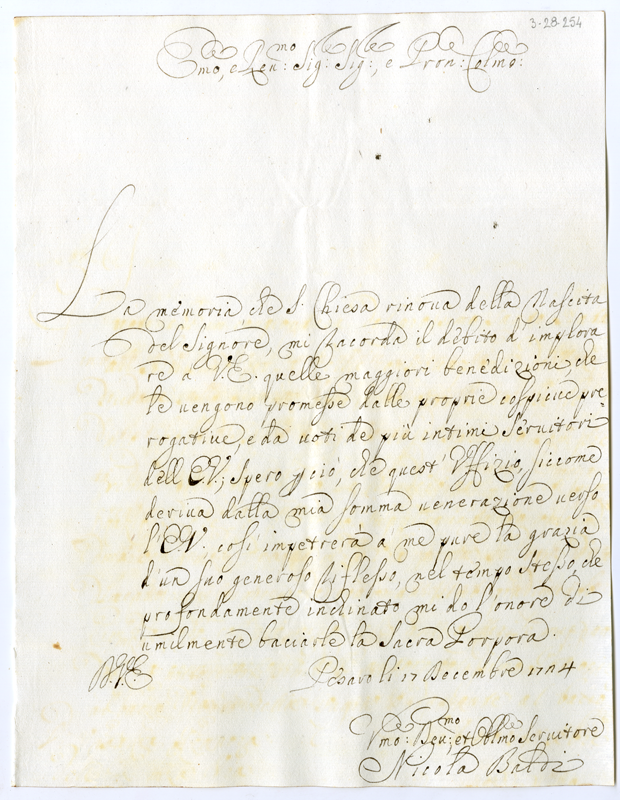 3-28-254
Emo, e Reu:mo Sig: Sig:, e Pron: Colmo:
La memoria che S. Chiesa rinoua della Nascita
del Signore, mi racorda il debito d'implora
re a V.E. quelle maggiori benedizioni, che
le uengono promesse dalle proprie cospicue pre
rogatiue, e da uoti de più intimi Seruitori
dell'E.V.; Spero p ciò, che quest' Vffizio, siccome
deriua dalla mia somma uenerazione uerso
l'E.V. così impetrerà a me pure la grazia
d'un suo generoso riflesso, nel tempo stesso, che
profondamente inclinato mi do l'onore di
umilmente baciarle la Sacra Porpora.
D.V.E. Pesaro li 17 Decembre 17
Vmo: Deu:mo et Obblmo Seruitore
Nicola Baldi